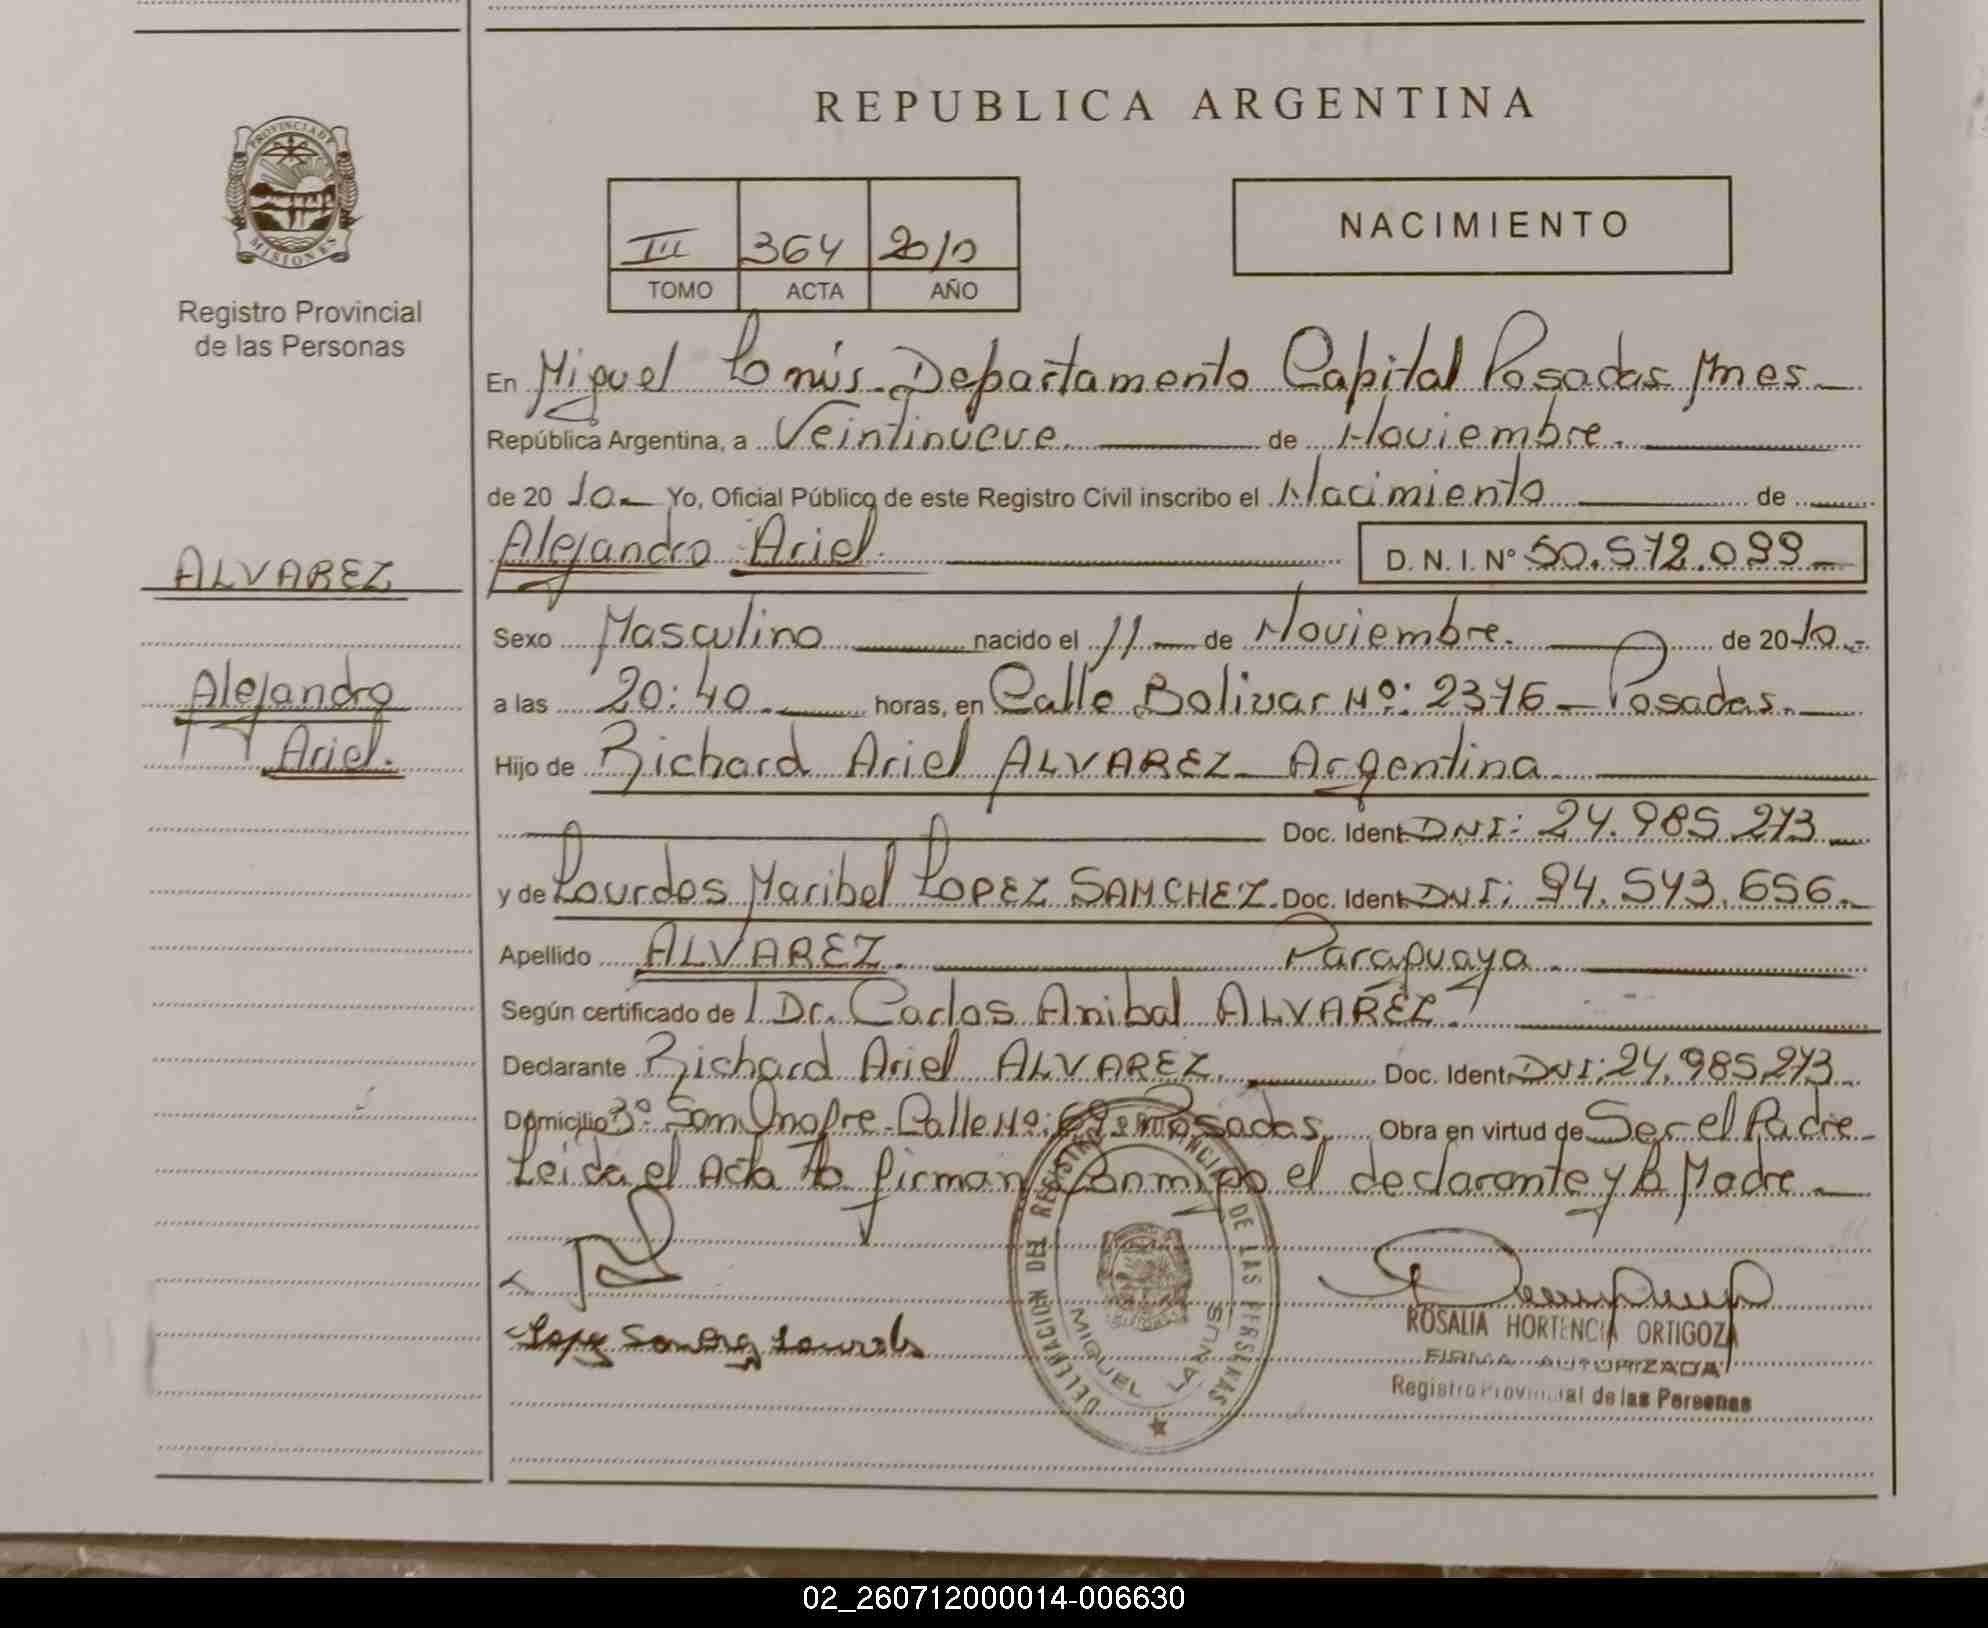 REPUBLICA ARGENTINA
PROVINCIA DE
MISIONES
Registro Provincial
de las Personas
III 364 2010
TOMO ACTA AÑO
NACIMIENTO
En Miguel Lanús. Departamento Capital Posadas Mnes.
República Argentina, a Veintinueve. de Noviembre.
de 20 10. Yo, Oficial Público de este Registro Civil inscribo el Nacimiento de
Alejandro Ariel. D. N. I. N° 50.572.099
ALVAREZ
Alejandro
Ariel.
Sexo Masculino nacido el 11 de Noviembre. de 20 10.
a las 20:40. horas, en Calle Bolivar Nº: 2376 - Posadas.
Hijo de Richard Ariel ALVAREZ - Argentina
Doc. Ident. DNI: 24.985.273
y de Lourdes Maribel LOPEZ SANCHEZ. Doc. Ident. DNI: 94.543.656.
Apellido ALVAREZ. Paraguaya.
Según certificado de l Dr. Carlos Anibal ALVAREZ.
Declarante Richard Ariel ALVAREZ. Doc. Ident. DNI: 24.985.273
Domicilio Bº San Onofre - Calle Nº: 69 - Posadas. Obra en virtud de Ser el Padre
Leida el Acta la firman Conmigo el declarante y la Madre
DELEGACION DEL REGISTRO PROVINCIAL DE LAS PERSONAS
MIGUEL LANUS
Lopez Sanchez Lourdes
ROSALIA HORTENCIA ORTIGOZA
FIRMA AUTORIZADA
Registro Provincial de las Personas
02_260712000014-006630